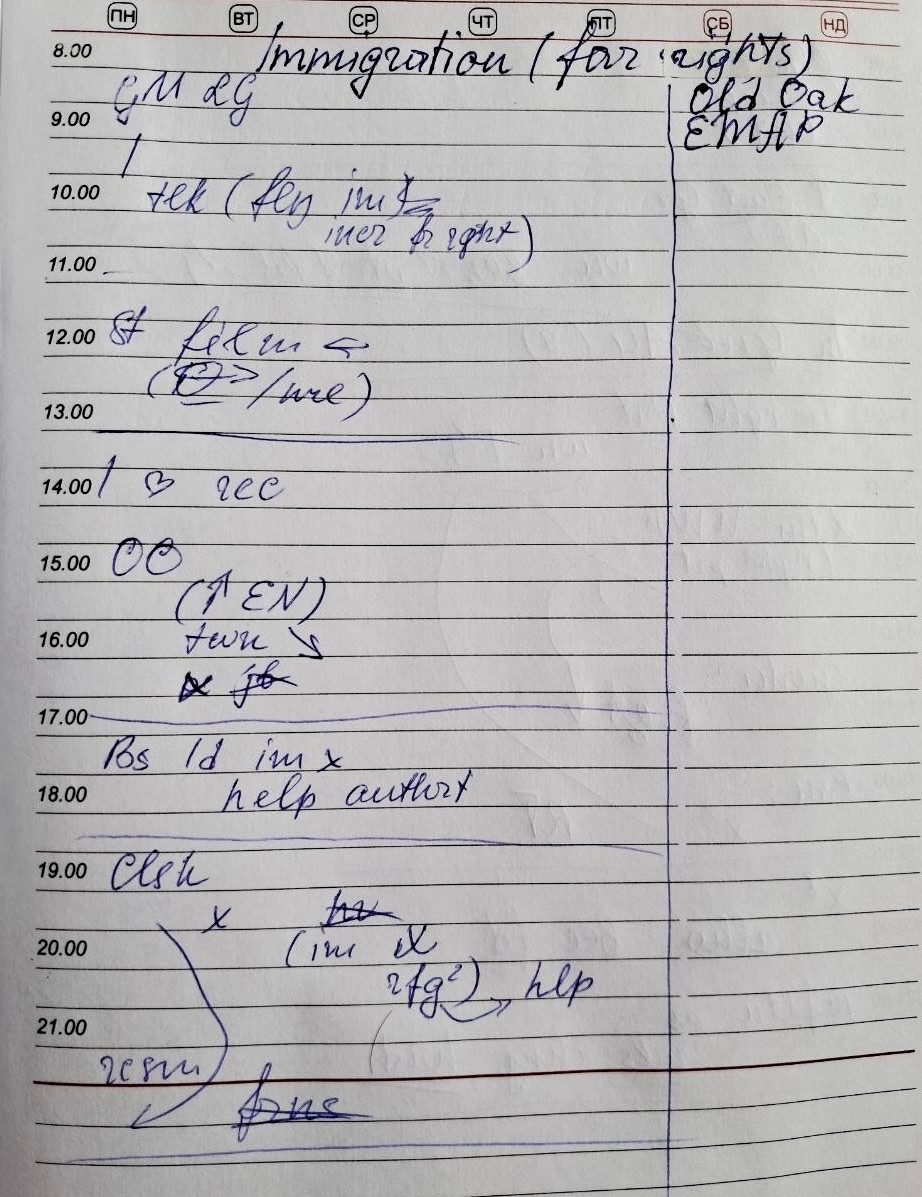 ПН ВТ СР ЧТ ПТ СБ НД
8.00 Immigration (far rights)
GM LG Old Oak
9.00 EMAP
10.00 tek (fen im)
incr fr right)
11.00
12.00 St film ←
( /wre)
13.00
14.00 / ♡ rec
15.00 OO
(↑ EN)
16.00 twn ↘
17.00
Bs ld im x
18.00 help authrt
19.00 Clsk
x
20.00 (im x
rfg²) → hlp
21.00
resm
frns